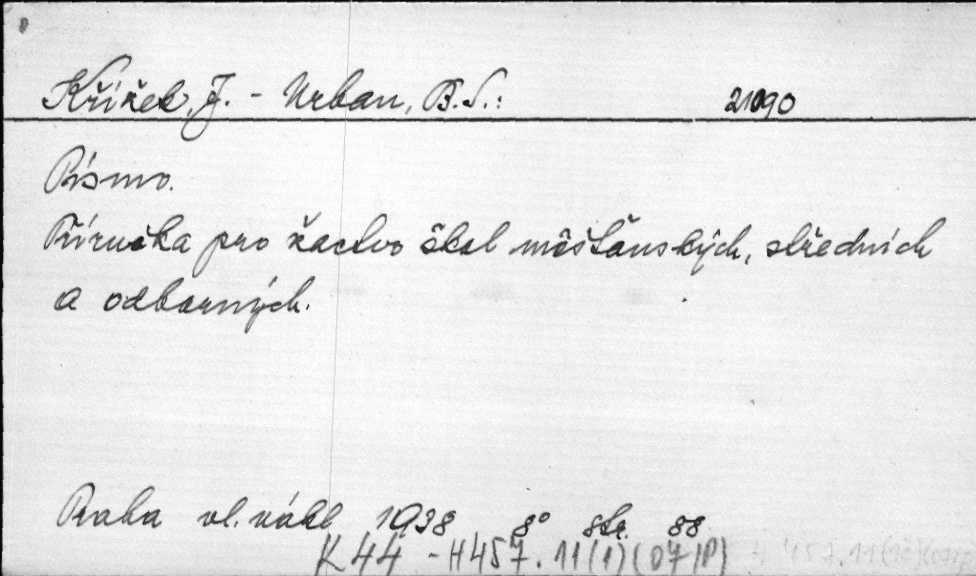 Křížek, J. - Urban, B.S.: 21090
Písmo.
Příručka pro žactvo škol měšťanských, středních
a odborných.
Praha vl. nákl. 1938 8° str. 88.
K 44 - H457.11(1)(07/P)